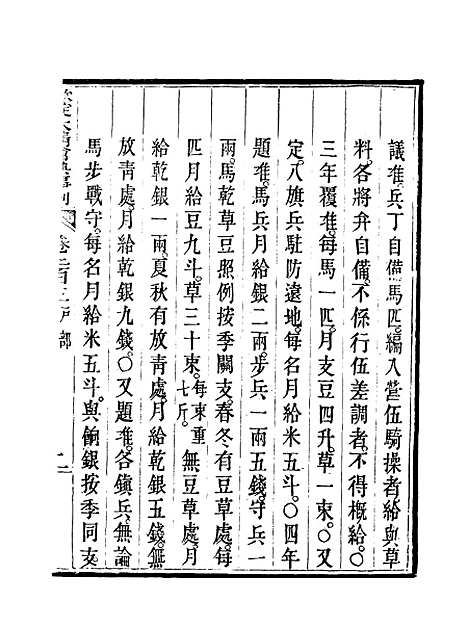 議准。兵丁自備馬匹。編入營伍騎操者給與草
料。各將弁自備。不係行伍差調者。不得概給。〇
三年覆准。每馬一匹。月支豆四升。草一束。〇又
定。八旗兵駐防遠地。每名月給米五斗。〇四年
題准。馬兵月給銀二兩。步兵一兩五錢。守兵一
兩。馬乾草豆照例按季關支。春冬有豆草處。每
匹月給豆九斗。草三十束。每束重七斤。無豆草處。月
給乾銀一兩。夏秋有放青處。月給乾銀五錢。無
放青處。月給乾銀九錢。〇又題准。各鎮兵。無論
馬步戰守。每名月給米五斗。與餉銀按季同支。
卷二百三 戶部